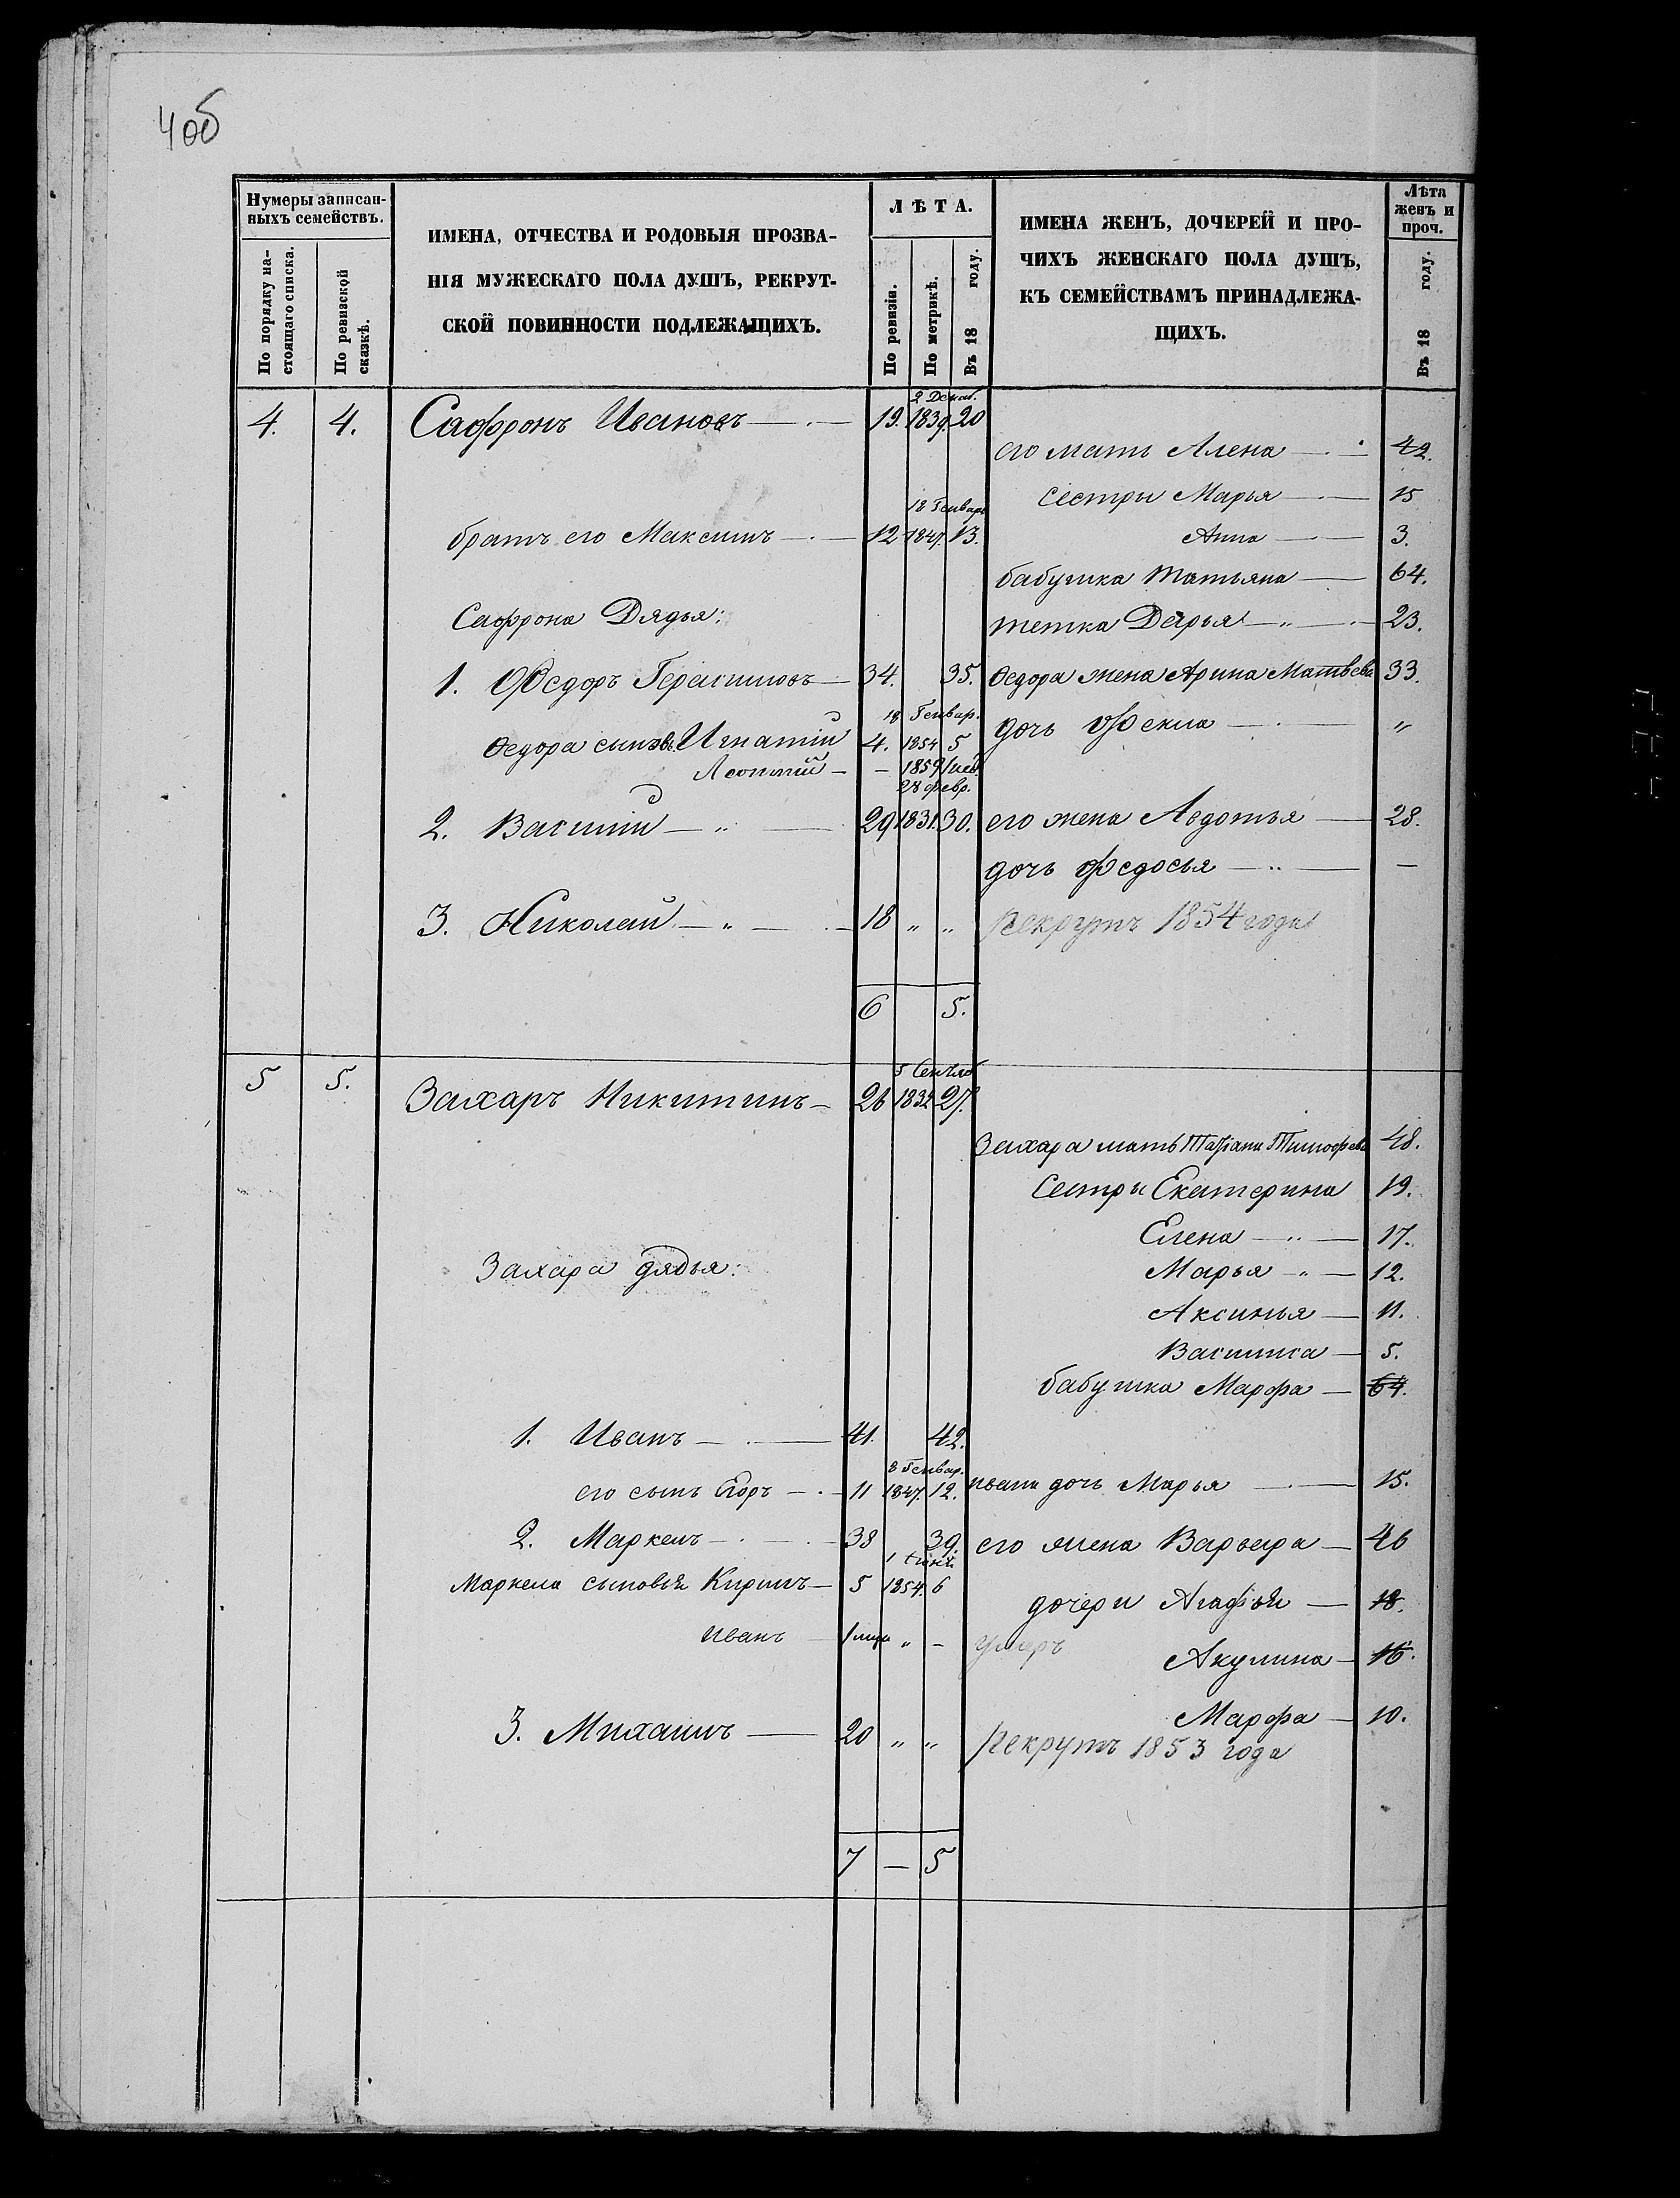 4об
Нумеры записан-
ныхъ семействъ.
По порядку на-
стоящаго списка.
По ревизской
сказкѣ.
ИМЕНА, ОТЧЕСТВА И РОДОВЫЯ ПРОЗВА-
НІЯ МУЖЕСКАГО ПОЛА ДУШЪ, РЕКРУТ-
СКОЙ ПОВИННОСТИ ПОДЛЕЖАЩИХЪ.
ЛѢТА.
По ревизіи.
По метрикѣ.
Въ 18 году.
ИМЕНА ЖЕНЪ, ДОЧЕРЕЙ И ПРО-
ЧИХЪ ЖЕНСКАГО ПОЛА ДУШЪ,
КЪ СЕМЕЙСТВАМЪ ПРИНАДЛЕЖА-
ЩИХЪ.
Лѣта
женъ и
проч.
Въ 18 году.
2 Декаб.
4. 4. Сафронъ Ивановъ — 19. 1839. 20
его мать Алена — 42.
сестры Марья — 15
18 Генваря
братъ его Максимъ — 12 1847. 13. Анна — 3.
бабушка Татьяна — 64.
Сафрона Дядья: тетка Дарья — „ — 23.
1. Ѳедоръ Герасимовъ — 34. 35. Ѳедора жена Арина Матвѣева 33.
18 Генвар. дочь Ѳекла — „
Ѳедора сыновь. Игнатій 4. 1854 5
Леонтій — – 1859
28 Февр.
2. Василій — „ — 29 1831. 30. его жена Авдотья — 28.
дочь Ѳедосья — „ — —
3. Николай — „ — 18 „ „ рекрутъ 1854 года
6 5.
5 Сентяб
5 5. Захаръ Никитинъ — 26 1832 27.
Захара мать Татіана Тимофеева 48.
Сестры Екатерина 19.
Елена — „ — 17.
Захара дядья: Марья „ — 12.
Аксинья — 11.
Василиса — 5.
бабушка Марфа — 64.
1. Иванъ — 41. 42.
8 Генвар.
его сынъ Егоръ — 11 1847. 12. ивана дочь Марья — 15.
2. Маркелъ — 38 39. его жена Варвара — 46
1 Іюня
Маркела сыновья Кирилъ — 5 1854. 6
дочери Агафья — 18.
Иванъ — „ – умеръ
Акулина — 16.
Марфа — 10.
3. Михаилъ — 20 „ „ рекрутъ 1853 года
7 — 5